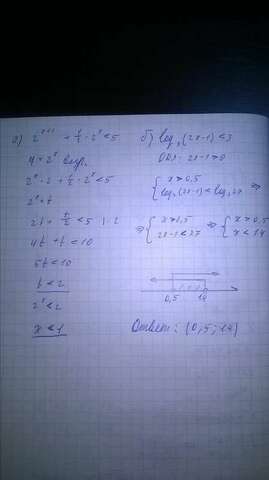 а) 2^(x+1) + 1/2 · 2^x < 5
y = 2^x возр.
2^x · 2 + 1/2 · 2^x < 5
2^x = t
2t + t/2 < 5 | · 2
4t + t < 10
5t < 10
t < 2
2^x < 2
x < 1
б) log₃(2x-1) < 3
ОДЗ: 2x-1 > 0
{ x > 0,5
log₃(2x-1) < log₃ 27 ⇒
⇒ { x > 0,5 ⇒ { x > 0,5
2x-1 < 27 x < 14
0,5 14
Ответ: (0,5; 14)